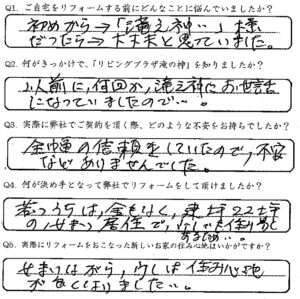 Q1. ご自宅をリフォームする前にどんなことに悩んでいましたか？
初めから→「滝の神‥」様
だったら→大丈夫と思っていました。
Q2. 何がきっかけで、「リビングプラザ滝の神」を知りましたか？
以前に、何回か、滝之神にお世話
になっていましたので‥。
Q3. 実際に弊社でご契約を頂く際、どのような不安をお持ちでしたか？
全幅の信頼をしていたので、不安
などありませんでした。
Q4. 何が決め手となって弊社でリフォームをして頂けましたか？
若いうちは、金もなく、建坪22坪
の 住
Q5. 実際にリフォームをおこなった新しいお家の住み心地はいかがですか？
ながら、少しは住み心地
が良くなりました‥。